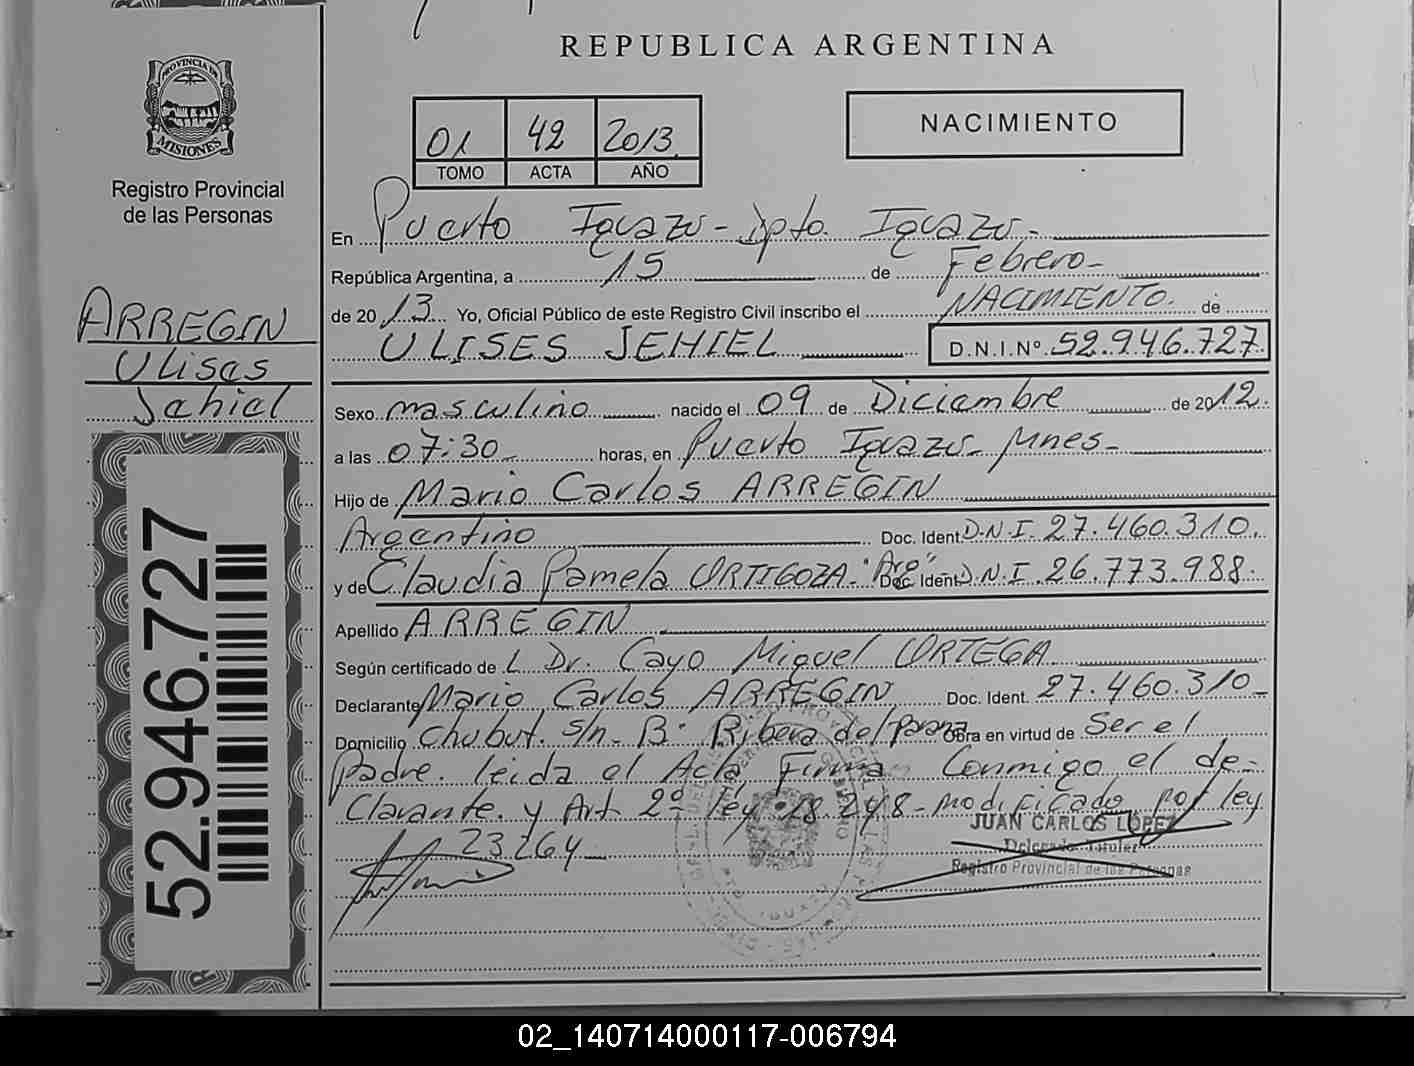 REPUBLICA ARGENTINA
PROVINCIA DE
MISIONES
Registro Provincial
de las Personas
01 42 2013
TOMO ACTA AÑO
NACIMIENTO
En Puerto Iguazú - Dpto. Iguazú -
República Argentina, a 15 de Febrero -
de 2013 Yo, Oficial Público de este Registro Civil inscribo el NACIMIENTO. de
ULISES JEHIEL D.N.I.Nº 52.946.727
ARREGIN
Ulises
Jehiel
Sexo masculino nacido el 09 de Diciembre de 2012.
a las 07:30 horas, en Puerto Iguazú - Mnes -
Hijo de Mario Carlos ARREGIN
Argentino Doc. Ident D.N.I. 27.460.310.
y de Claudia Pamela ORTIGOZA. "Arg" Doc. Ident D.N.I. 26.773.988.
Apellido ARREGIN
Según certificado de L Dr. Cayo Miguel ORTEGA
Declarante Mario Carlos ARREGIN Doc. Ident. 27.460.310 -
Domicilio Chubut. S/n - B· Ribera del Paraná Obra en virtud de Ser el
Padre. leida el Acta, Firma Conmigo el de-
Clarante. y Art. 2º ley 18.248 - modificado por ley
23.264
JUAN CARLOS LOPEZ
Delegado Titular
Registro Provincial de las Personas
52.946.727
02_140714000117-006794